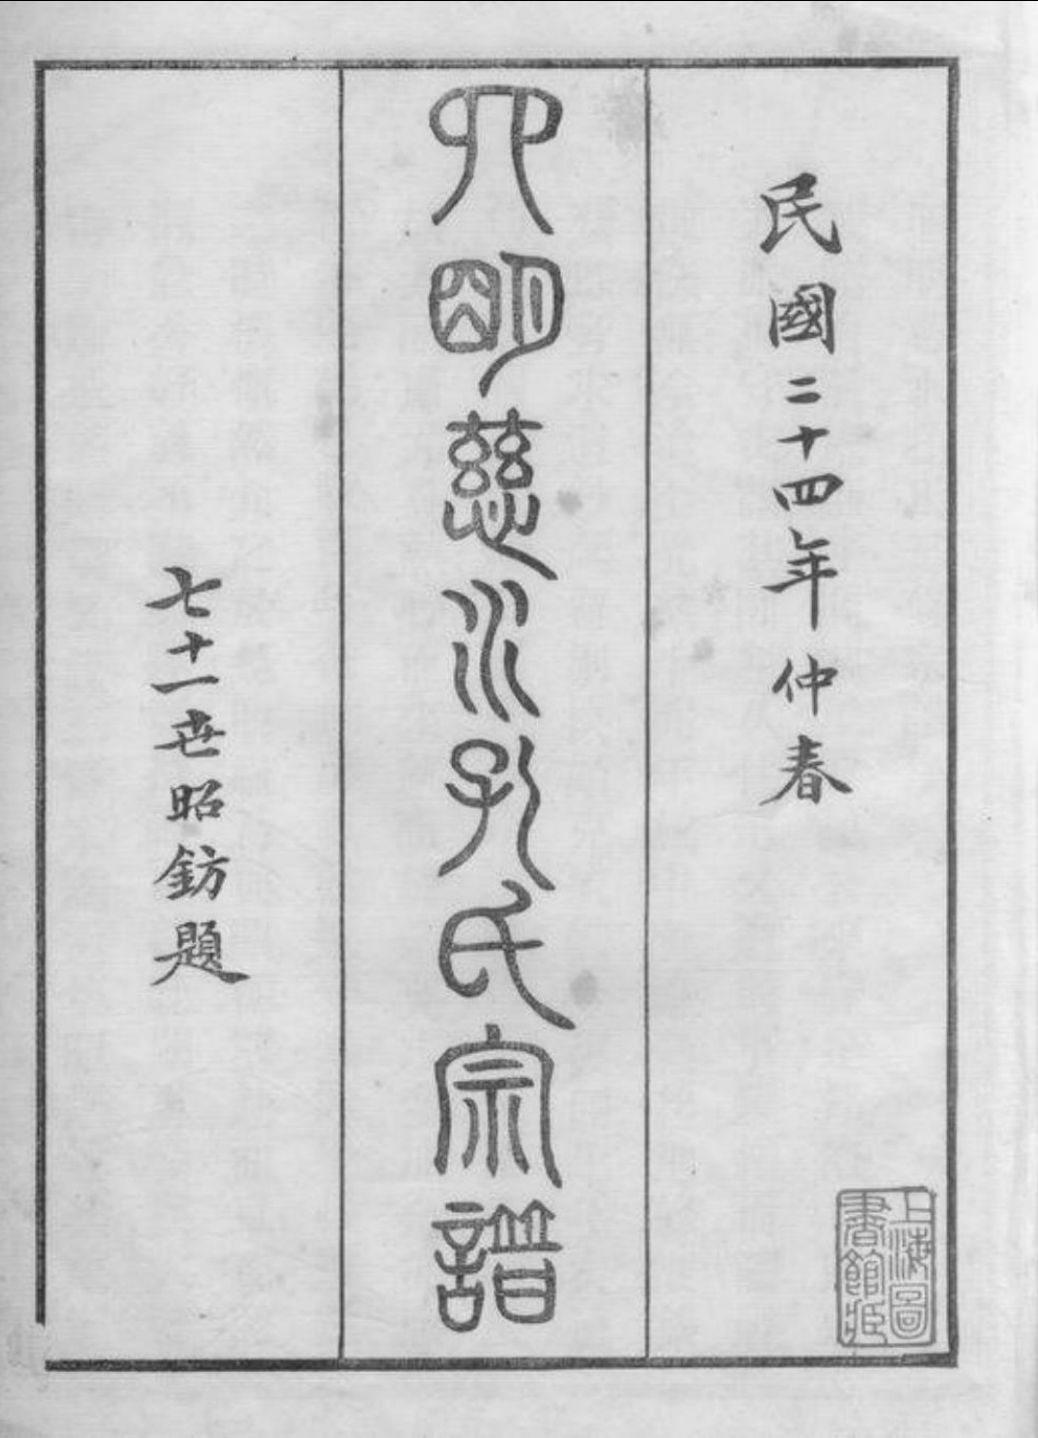 民國二十四年仲春
四明慈水孔氏宗譜
七十一世昭鈁題
上海圖
書館藏